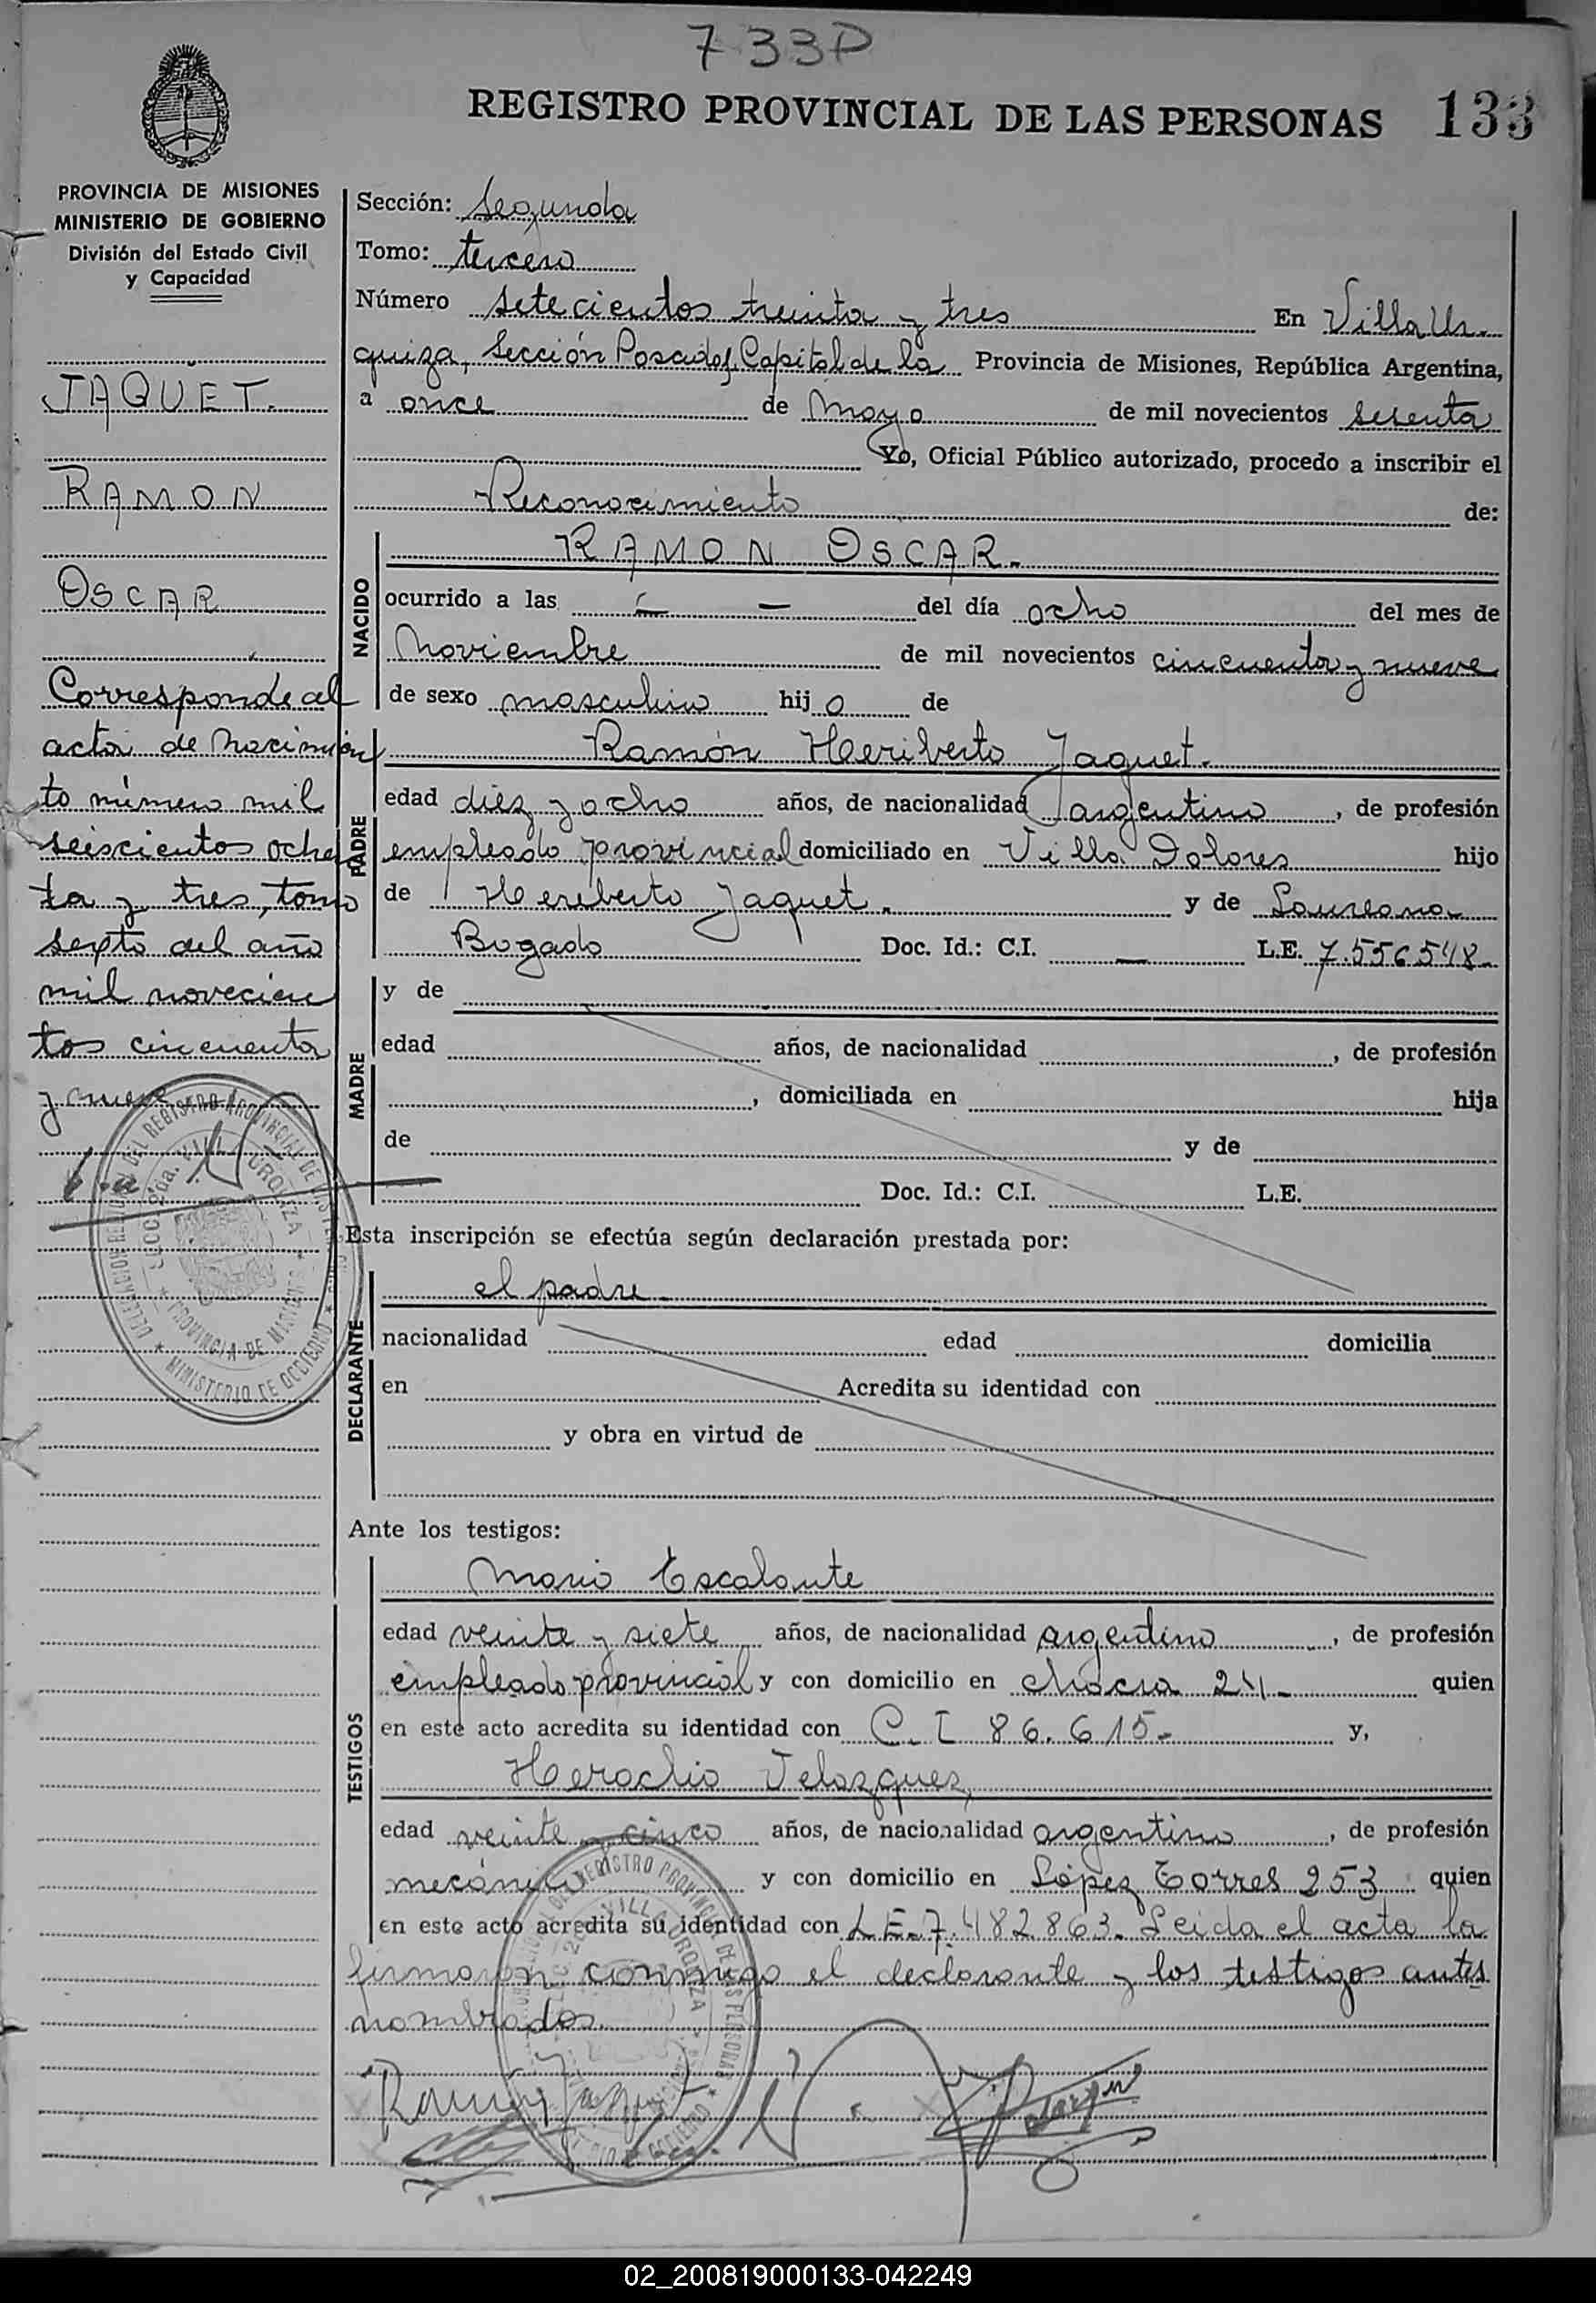 733P
REGISTRO PROVINCIAL DE LAS PERSONAS 133
PROVINCIA DE MISIONES
MINISTERIO DE GOBIERNO
División del Estado Civil
y Capacidad
JAQUET.
RAMON
OSCAR
Corresponde al
acta de Nacimien
to número mil
seiscientos ochen
ta y tres, tomo
sexto del año
mil novecien
tos cincuenta
y nueve
Sección: Segunda
Tomo: tercero
Número setecientos treinta y tres En Villa Ur-
quiza, Sección Posadas, Capital de la Provincia de Misiones, República Argentina,
a once de Mayo de mil novecientos sesenta
Yo, Oficial Público autorizado, procedo a inscribir el
Reconocimiento de:
NACIDO
RAMON OSCAR.
ocurrido a las — — del día ocho del mes de
Noviembre de mil novecientos cincuenta y nueve
de sexo masculino hijo de
PADRE
Ramón Heriberto Jaquet.
edad diez y ocho años, de nacionalidad argentino, de profesión
empleado provincial domiciliado en Villa Dolores hijo
de Heriberto Jaquet. y de Laureana
Bogado Doc. Id.: C.I. — L.E. 7.556548-
MADRE
y de
edad años, de nacionalidad , de profesión
, domiciliada en hija
de y de
Doc. Id.: C.I. L.E.
Esta inscripción se efectúa según declaración prestada por:
DECLARANTE
el padre
nacionalidad edad domicilia
en Acredita su identidad con
y obra en virtud de
Ante los testigos:
TESTIGOS
Mario Escalante
edad veinte y siete años, de nacionalidad argentino, de profesión
empleado provincial y con domicilio en chacra 24- quien
en este acto acredita su identidad con C. I 86.615- y,
Heraclio Velazquez
edad veinte y cinco años, de nacionalidad argentino, de profesión
mecánico y con domicilio en López Torres 253 quien
en este acto acredita su identidad con L.E. 7.482.863. Leida el acta la
firmaron conmigo el declarante y los testigos antes
nombrados.
Ramón Jaquet
02_200819000133-042249